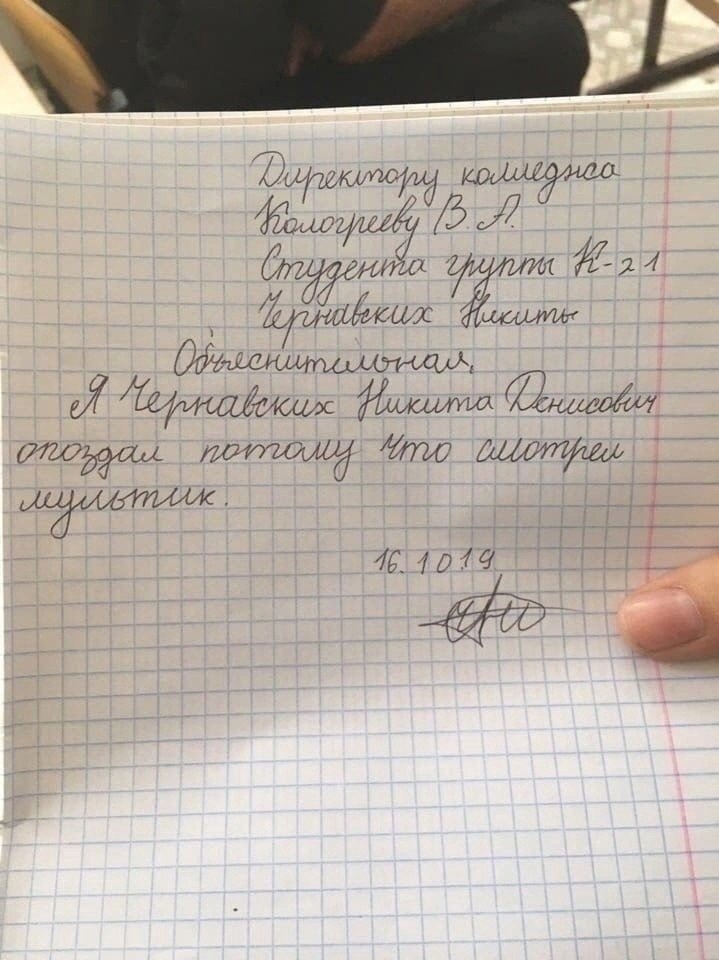 Директору колледжа
Кологрееву В. А.
Студента группы К-21
Чернавских Никиты
Объяснительная.
Я Чернавских Никита Денисович
опоздал потому что смотрел
мультик.
16.10.19